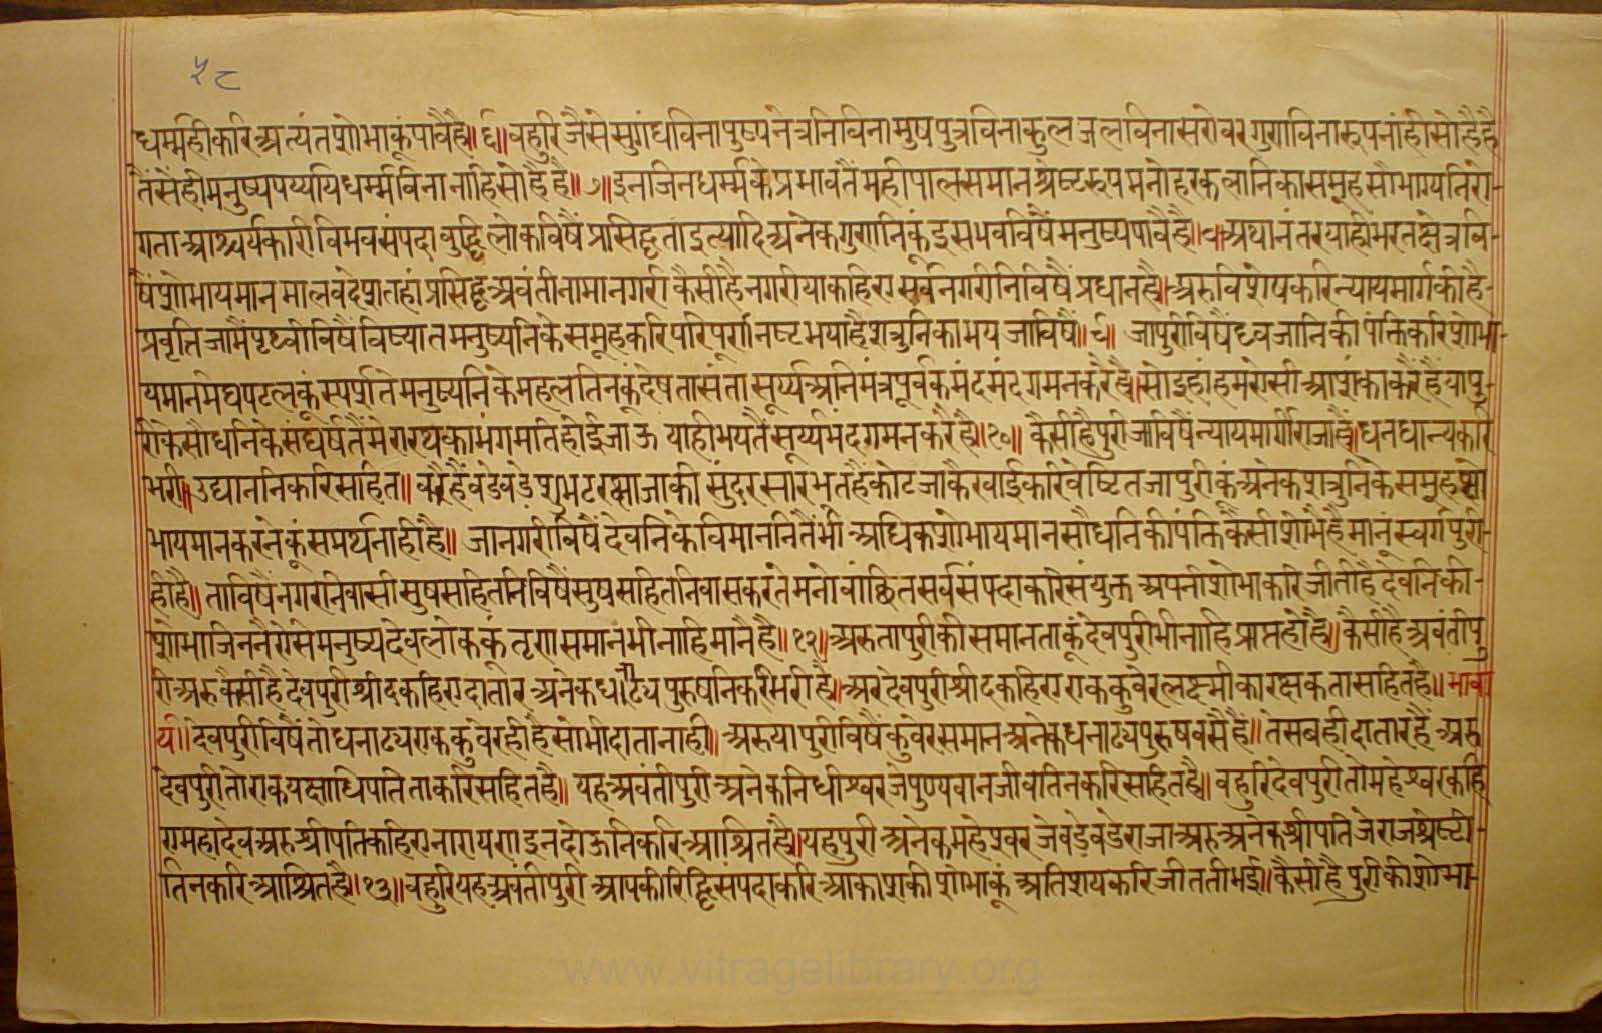 ५८
धर्म्महीकरिअत्यंतशोभाकूंपावैहै॥६॥बहुरिजैसेसुगंधविनापुष्पनेत्रनिविनामुषपुत्रविनाकुलजलविनासरोवरगुणविनारूपनांहीसोहैहै
तैसेहीमनुष्यपर्य्यायधर्म्मविनानाहिसोहैहै॥७॥इनजिनधर्म्मकेप्रभावतैंमहीपालसमानश्रेष्टरूपमनोहरकलानिकासमूहसौभाग्यनिरो-
गताआश्चर्यकारीविभवसंपदाबुद्धिलोकविषैंप्रसिद्धताइत्यादिअनेकगुणनिकूंइसभवविषैंमनुष्यपावैहै॥८॥अथानंतरयाहीभरतक्षेत्रवि-
षैंशोभायमानमालवदेशतहांप्रसिद्धअवंतीनामानगरीकैसीहैनगरीयाकहिएसर्वनगरीनिविषैंप्रधानहै॥अरुविशेषकरिन्यायमार्गकीहै-
प्रवृत्तिजामैंपृथ्वीविषैंविष्यातमनुष्यनिकेसमूहकरिपरिपूर्णनष्टभयाहैशत्रुनिकाभयजाविषैं॥९॥जापुरीविषैंध्वजानिकीपंक्तिकरिशोभा-
यमानमेघपटलकूंस्पर्शतेमनुष्यनिकेमहलतिनकूंदेषतासंतासूर्य्यअनिमंत्रपूर्वकमंदमंदगमनकरैहै॥सोइहांहमऐसीआशंकाकरैहैंयापु-
रीकेसौधनिकेसंघर्षतैंमेरारथकाभंगमतिहोईजाऊयाहीभयतैंसूर्य्यमंदगमनकरैहै॥१०॥कैसीहैपुरीजाविषैंन्यायमार्गीराजाहै॥धनधान्यकरि
भरी॥उद्याननिकरिसहित॥वरैहैंबडेबडेशुभटरक्षाजाकीसुंदरसारभूतहैंकोटजाकैखाईकरिवेष्टितजापुरीकूंअनेकशत्रुनिकेसमूहक्षो
भायमानकरनेकूंसमर्थनाहीहै॥जानगरीविषैंदेवनिकेविमाननितैंभीअधिकशोभायमानसौधनिकीपंक्तिकैसीशोभैहैमानूंस्वर्गपुरी-
हीहै॥ताविषैंनगरनिवासीसुषसहितनिविषैंसुषसहितनिवासकरतेमनोवांछितसर्वसंपदाकरिसंयुक्तअपनीशोभाकरिजीतीहैदेवनिकी-
शोभाजिननैऐसेमनुष्यदेवलोककूंतृणसमानभीनाहिमानैहै॥१२॥अरुतापुरीकीसमानताकूंदेवपुरीभीनाहिप्राप्तहोहै॥कैसीहैअवंतीपु
रीअरुकैसीहैदेवपुरीश्रीदकहिएदातारअनेकधनाढ्यपुरुषनिकरिभरीहै॥अरदेवपुरीश्रीदकहिएएककुबेरलक्ष्मीकारक्षकतासहितहै॥भावा
र्थ॥देवपुरीविषैंतोधनाढ्यएककुबेरहीहैसोभीदातानाही॥अरुयापुरीविषैंकुबेरसमानअनेकधनाढ्यपुरुषवसैहैं॥तेसबहीदातारहैंअरु
देवपुरीतोएकयक्षाधिपतिताकरिसहितहै॥यहअवंतीपुरीअनेकनिधीश्वरजेपुण्यवानजीवतिनकरिसहितहै॥बहुरिदेवपुरीतोमहेश्वरकहि
एमहादेवअरुश्रीपतिकहिएनारायणइनदोऊनिकरिआश्रितहै॥यहपुरीअनेकमहेश्वरजेबडेबडेराजाअरुअनेकश्रीपतिजेराजश्रेष्टी-
तिनकरिआश्रितहै॥१३॥बहुरियहअवंतीपुरीआपकीरिद्धिसंपदाकरिआकाशकीशोभाकूंअतिशयकरिजीततीभई॥कैसीहैपुरीकीशोभा-
www.vitragelibrary.org